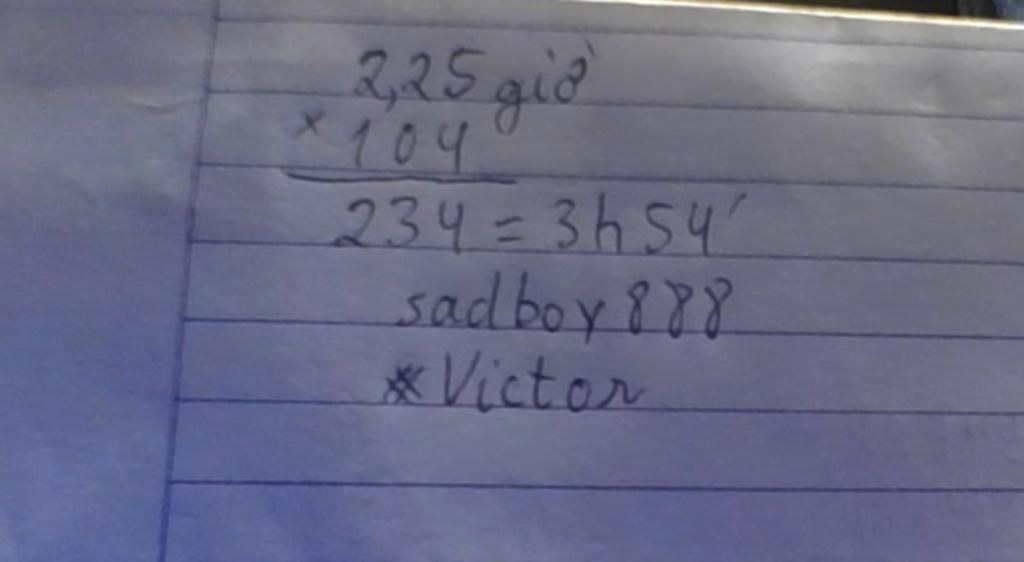 2,25 giờ
× 104
234 = 3h54'
sadboy888
*Victor